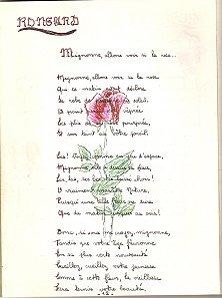 RONSARD
Mignonne, allons voir si la rose...
Mignonne, allons voir si la rose
Qui ce matin avoit déclose
Sa robe de pourpre au soleil,
A point perdu cette vesprée
Les plis de sa robe pourprée,
Et son teint au vôtre pareil.
Las! Voyez comme en peu d'espace,
Mignonne, elle a dessus la place,
Las, las, ses beautés laissé choir!
O vraiment marâtre Nature,
Puisqu'une telle fleur ne dure
Que du matin jusques au soir!
Donc, si vous me croyez, mignonne,
Tandis que votre âge fleuronne
En sa plus verte nouveauté
Cueillez, cueillez votre jeunesse
Comme à cette fleur, la vieillesse
Fera ternir votre beauté.